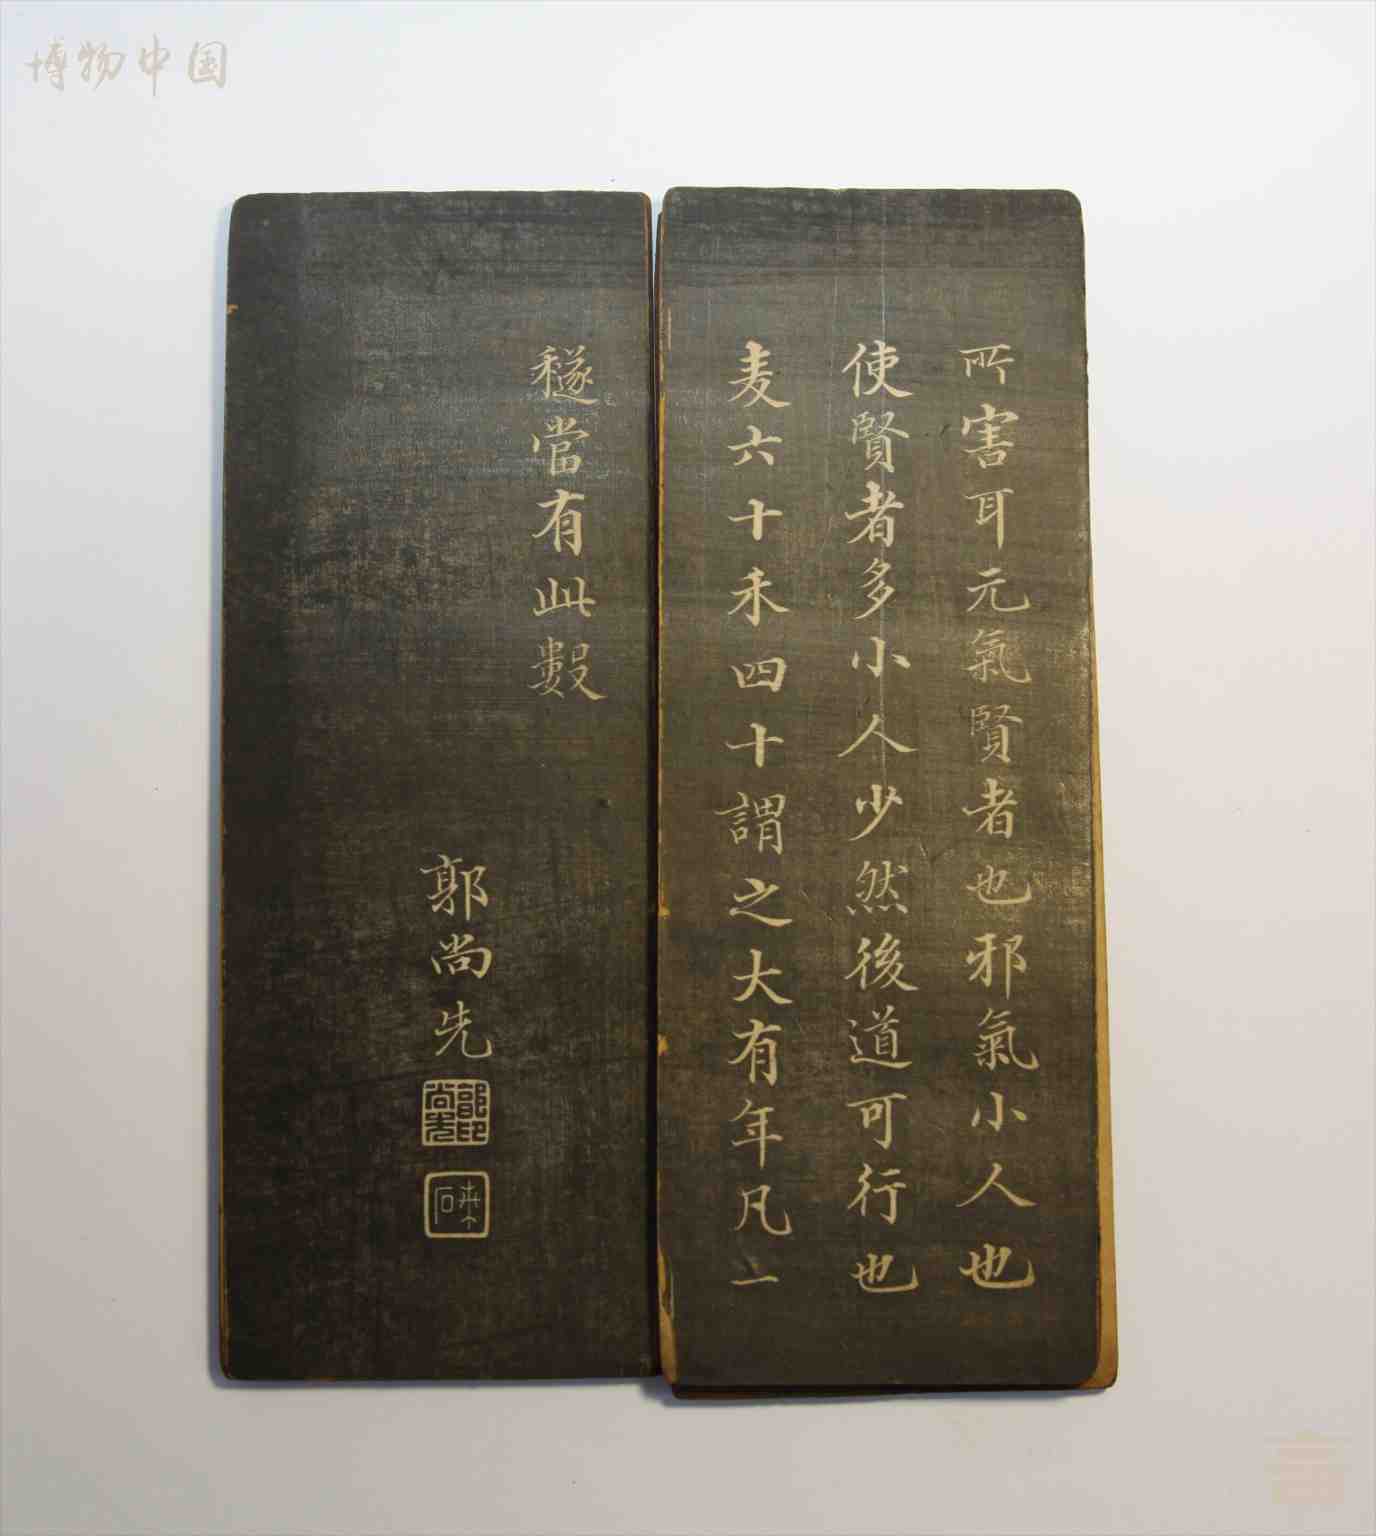 博物中国
所害耳元氣賢者也邪氣小人也
使賢者多小人少然後道可行也
麦六十禾四十謂之大有年凡一
穟當有此數
郭尚先
郭印尚先